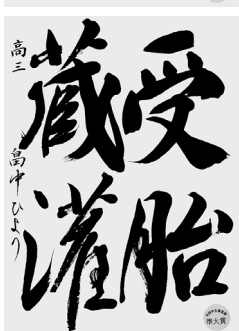 受胎
蔵灌
高三 畠中ひより
準大賞